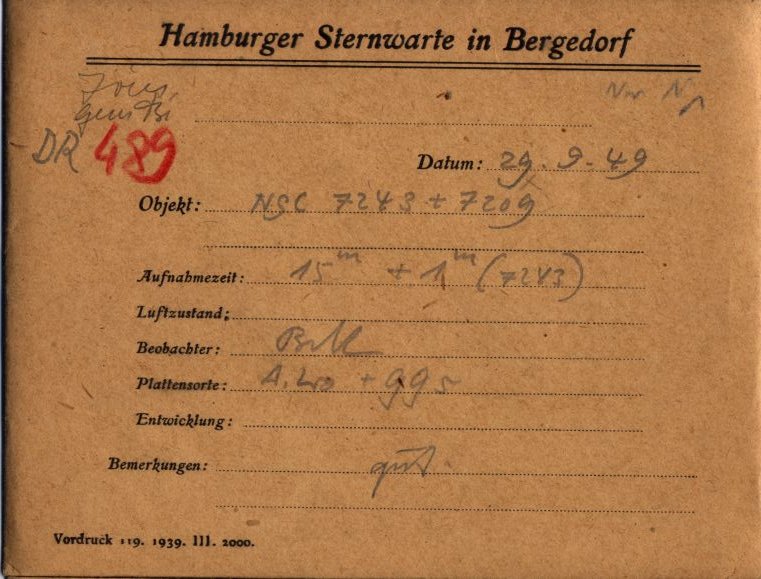 Hamburger Sternwarte in Bergedorf
DR 489
Datum: 29.9.49
Objekt: NGC 7243 + 7209
Aufnahmezeit: 15ᵐ + 1ᵐ (7243)
Luftzustand:
Beobachter:
Plattensorte: + gg5
Entwicklung:
Bemerkungen: gut.
Vordruck 119. 1939. III. 2000.